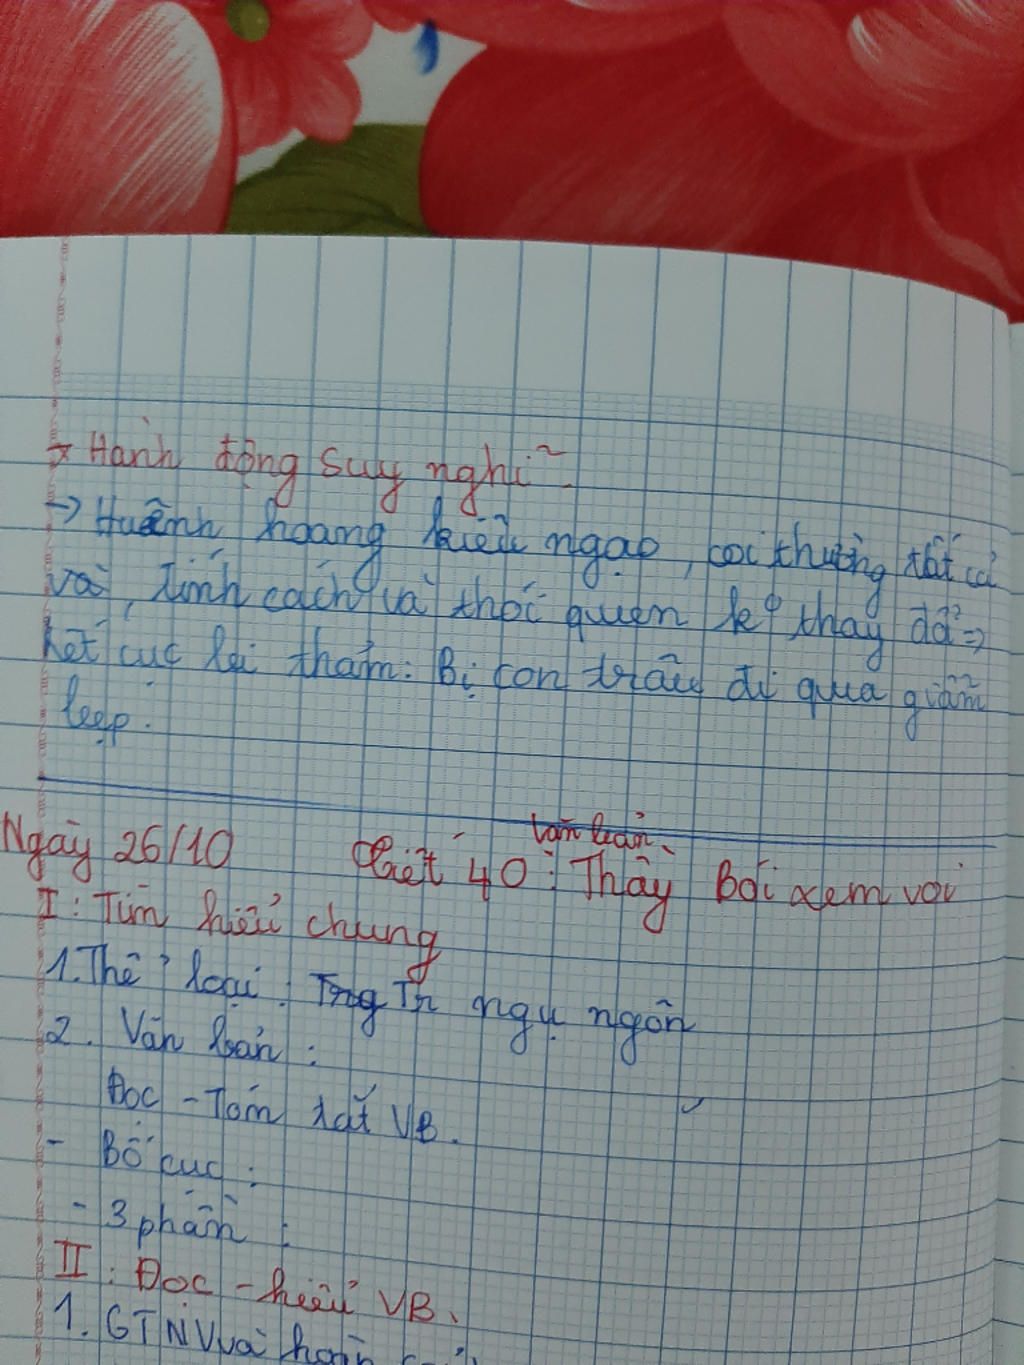 + Hành động suy nghĩ
-> Huênh hoang kiêu ngạo, coi thường tất cả
và, tính cách và thói quen k° thay đổi =>
Kết cục bi thảm: Bị con trâu đi qua giẫm
bẹp.
Ngày 26/10 Tiết 40: Văn bản: Thầy Bói xem voi
I: Tìm hiểu chung
1. Thể loại: Tr ngụ ngôn
2. Văn bản:
Đọc - Tóm tắt VB.
- Bố cục:
- 3 phần:
II: Đọc - hiểu VB.
1. GTNV và hoàn